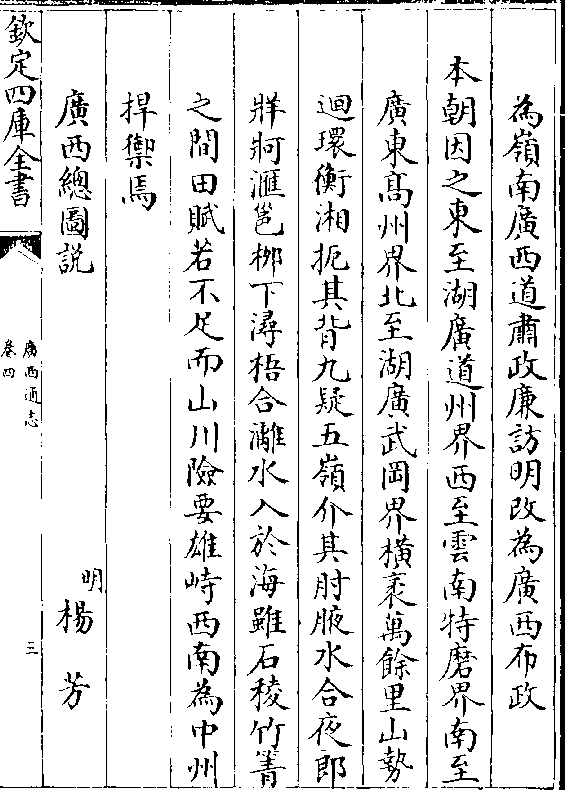 為嶺南廣西道肅政廉訪明改為廣西布政
本朝因之東至湖廣道州界西至雲南特磨界南至
廣東髙州界北至湖廣武岡界横袤萬餘里山勢
迴環衡湘扼其背九疑五嶺介其肘腋水合夜郎
牂牁滙邕栁下潯梧合灕水入於海雖石稜竹箐
之間田賦若不足而山川險要雄峙西南為中州
捍禦焉
廣西總圖説
明
楊芳
欽定四庫全書
廣西通志
卷四
三